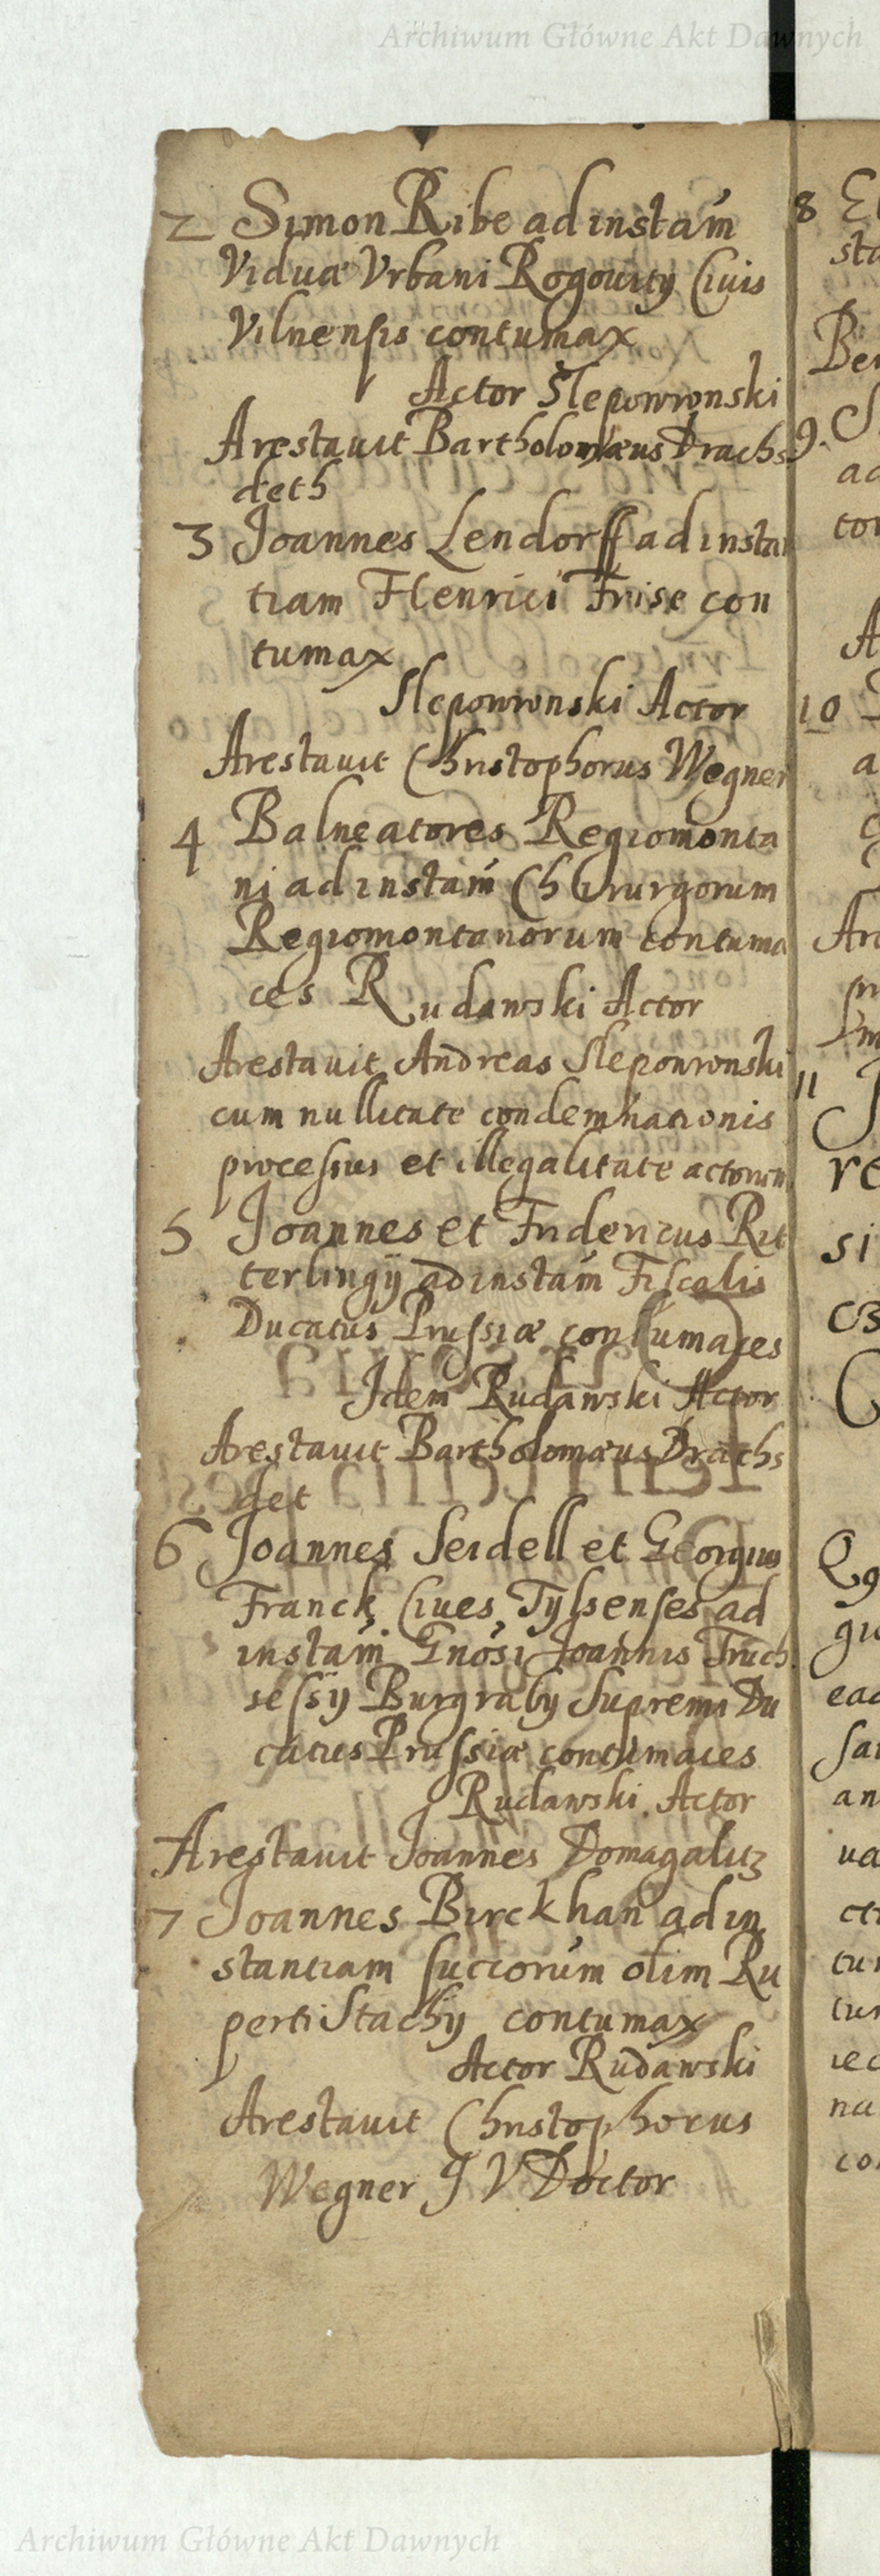 Archiwum Główne Akt Dawnych
2 Simon Ribe ad instam̃
Viduæ Vrbani Rogowity Ciuis
Vilnensis contumax
Actor Slepowronski
Arestauit Bartholomæus Drachs
deth
3 Joannes Lendorff ad instan
tiam Henrici Frise con
tumax
Slepowronski Actor
Arestauit Christophorus Wegner
4 Balneatores Regiomonta
ni ad instam̃ Chirurgorum
Regiomontanorum contuma
ces Rudawski Actor
Arestauit Andreas Slepowronski
cum nullitate condemnationis
processus et illegalitate actorum
5 Joannes et Fridericus Rit
terlingij ad instam̃ Fiscalis
Ducatus Prussiæ contumaces
Idem Rudawski Actor
Arestauit Bartholomæus Drachs
det
6 Joannes Seidell et Georgius
Franck Ciues Tylsenses ad
instam̃ Gnosi Joannis Truch
sessij Burgraby Supremi Du
catus Prussiæ contumaces
Rudawski Actor
Arestauit Joannes Domagalitz
7 Joannes Birckhan ad in
stantiam succorum olim Ru
perti Stachij contumax
Actor Rudawski
Arestauit Christophorus
Wegner J V Doctor
8
9.
10
11
Archiwum Główne Akt Dawnych